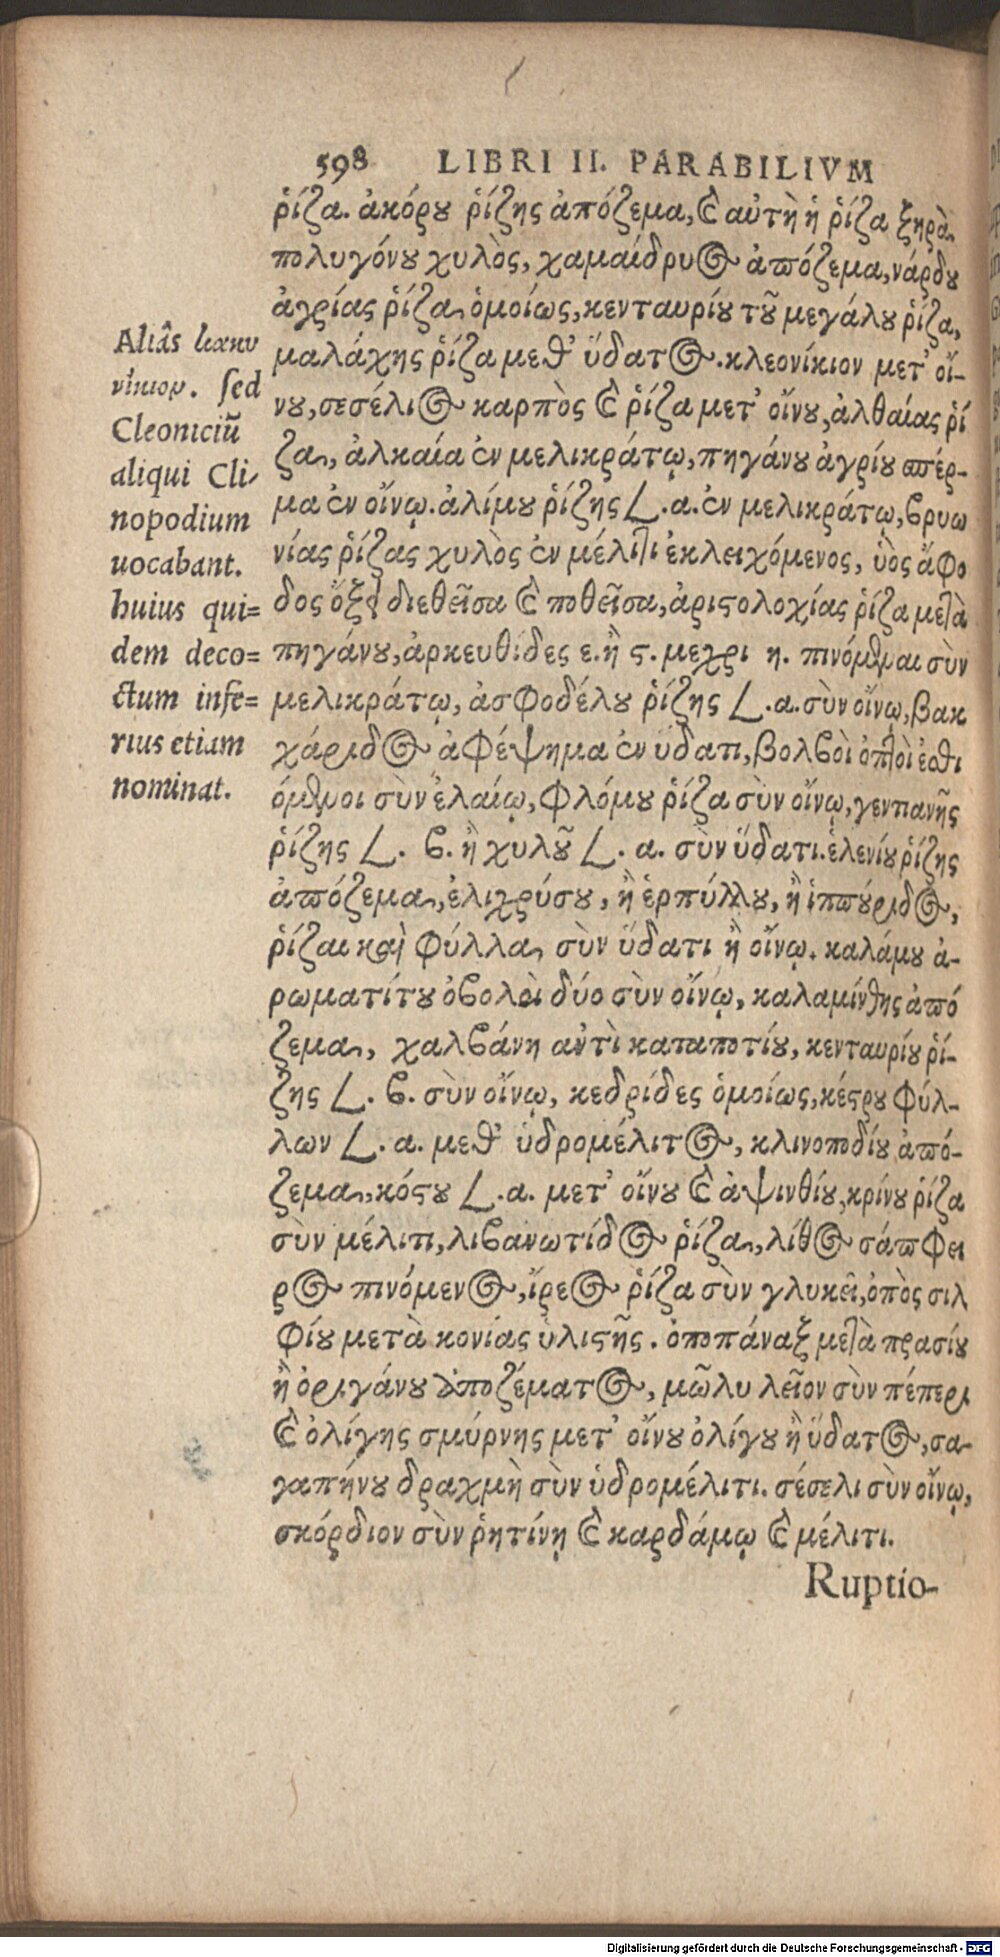 598 LIBRI II. PARABILIVM
ῥίζα. ἀκόρου ῥίζης ἀπόζεμα, καὶ αὐτὴ ἡ ῥίζα ξηρὰ,
πολυγόνου χυλὸς, χαμαίδρυος ἀπόζεμα, νάρδου
ἀγρίας ῥίζα, ὁμοίως, κενταυρίου τοῦ μεγάλου ῥίζα,
μαλάχης ῥίζα μεθ' ὕδατος. κλεονίκιον μετ' οἴ-
νου, σεσέλιος καρπὸς καὶ ῥίζα μετ' οἴνου, ἀλθαίας ῥί
ζα, ἀλκαία ἐν μελικράτῳ, πηγάνου ἀγρίου σπέρ-
μα ἐν οἴνῳ. ἀλίμου ῥίζης 𐅻. α. ἐν μελικράτῳ, βρυω
νίας ῥίζας χυλὸς ἐν μέλιτι ἐκλειχόμενος, ὑὸς ἄφο
δος ὄξει διεθεῖσα καὶ ποθεῖσα, ἀριστολοχίας ῥίζα μετὰ
πηγάνου, ἀρκευθίδες ε. ἢ ϛ. μεχρι η. πινόμεναι σὺν
μελικράτῳ, ἀσφοδέλου ῥίζης 𐅻. α. σὺν οἴνῳ, βακ
χάριδος ἀφέψημα ἐν ὕδατι, βολβοὶ ὀπτοὶ ἐσθι
όμενοι σὺν ἐλαίῳ, φλόμου ῥίζα σὺν οἴνῳ, γεντιανῆς
ῥίζης 𐅻. β. ἢ χυλοῦ 𐅻. α. σὺν ὕδατι. ἑλενίου ῥίζης
ἀπόζεμα, ἑλιχρύσου, ἢ ἑρπύλλου, ἢ ἱππούριδος,
ῥίζαι καὶ φύλλα, σὺν ὕδατι ἢ οἴνῳ. καλάμου ἀ-
ρωματίτου ὀβολοὶ δύο σὺν οἴνῳ, καλαμίνθης ἀπό
ζεμα, χαλβάνη ἀντὶ καταποτίου, κενταυρίου ῥί-
ζης 𐅻. β. σὺν οἴνῳ, κεδρίδες ὁμοίως, κέστρου φύλ-
λων 𐅻. α. μεθ' ὑδρομέλιτος, κλινοποδίου ἀπό-
ζεμα, κόστου 𐅻. α. μετ' οἴνου καὶ ἀψινθίου, κρίνου ῥίζα
σὺν μέλιτι, λιβανωτίδος ῥίζα, λίθος σάπφει
ρος πινόμενος, ἴρεος ῥίζα σὺν γλυκεῖ, ὀπὸς σιλ
φίου μετὰ κονίας ὑλιστῆς. ὀποπάναξ μετὰ πρασίου
ἢ ὀριγάνου ἀποζέματος, μῶλυ λεῖον σὺν πέπερι
καὶ ὀλίγης σμύρνης μετ' οἴνου ὀλίγου ἢ ὕδατος, σα-
γαπήνου δραχμὴ σὺν ὑδρομέλιτι. σέσελι σὺν οἴνῳ,
σκόρδιον σὺν ῥητίνῃ καὶ καρδάμῳ καὶ μέλιτι.
Ruptio-
Aliâs
νίκιον. sed
Cleoniciū
aliqui Cli-
nopodium
uocabant.
huius qui=
dem deco=
ctum infe=
rius etiam
nominat.
Digitalisierung gefördert durch die Deutsche Forschungsgemeinschaft - DFG